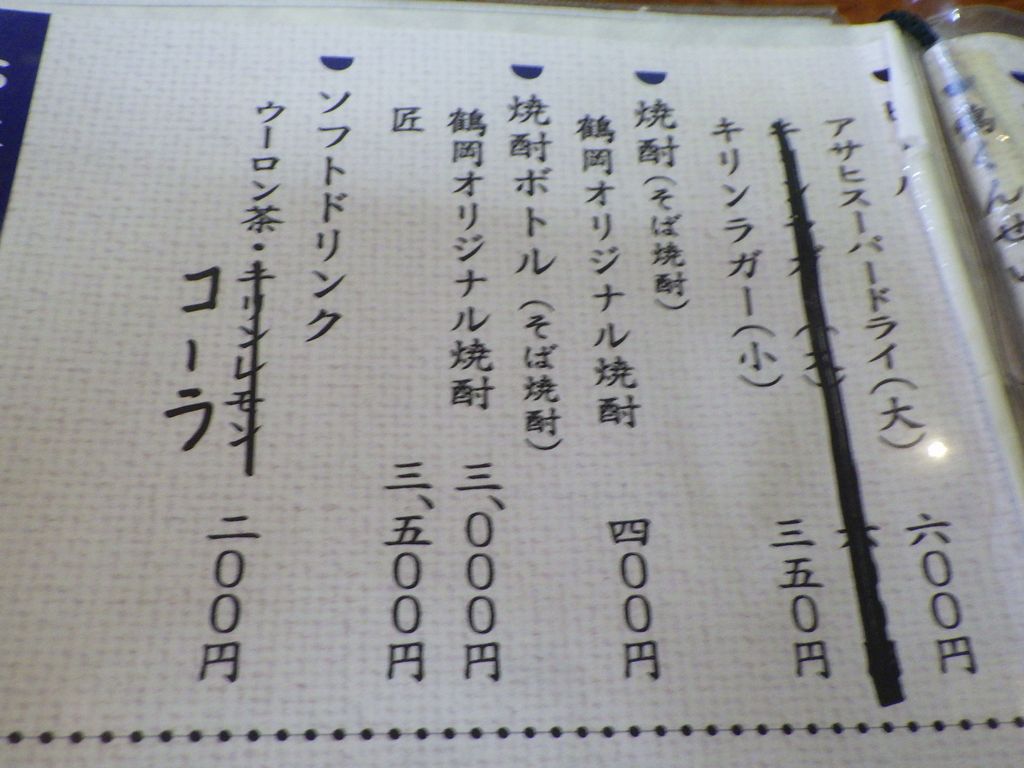 アサヒスーパードライ（大） 六〇〇円
キリンラガー（小） 三五〇円
焼酎（そば焼酎）
鶴岡オリジナル焼酎 四〇〇円
焼酎ボトル（そば焼酎）
鶴岡オリジナル焼酎 三、〇〇〇円
匠 三、五〇〇円
ソフトドリンク
ウーロン茶・キリンレモン 二〇〇円
コーラ